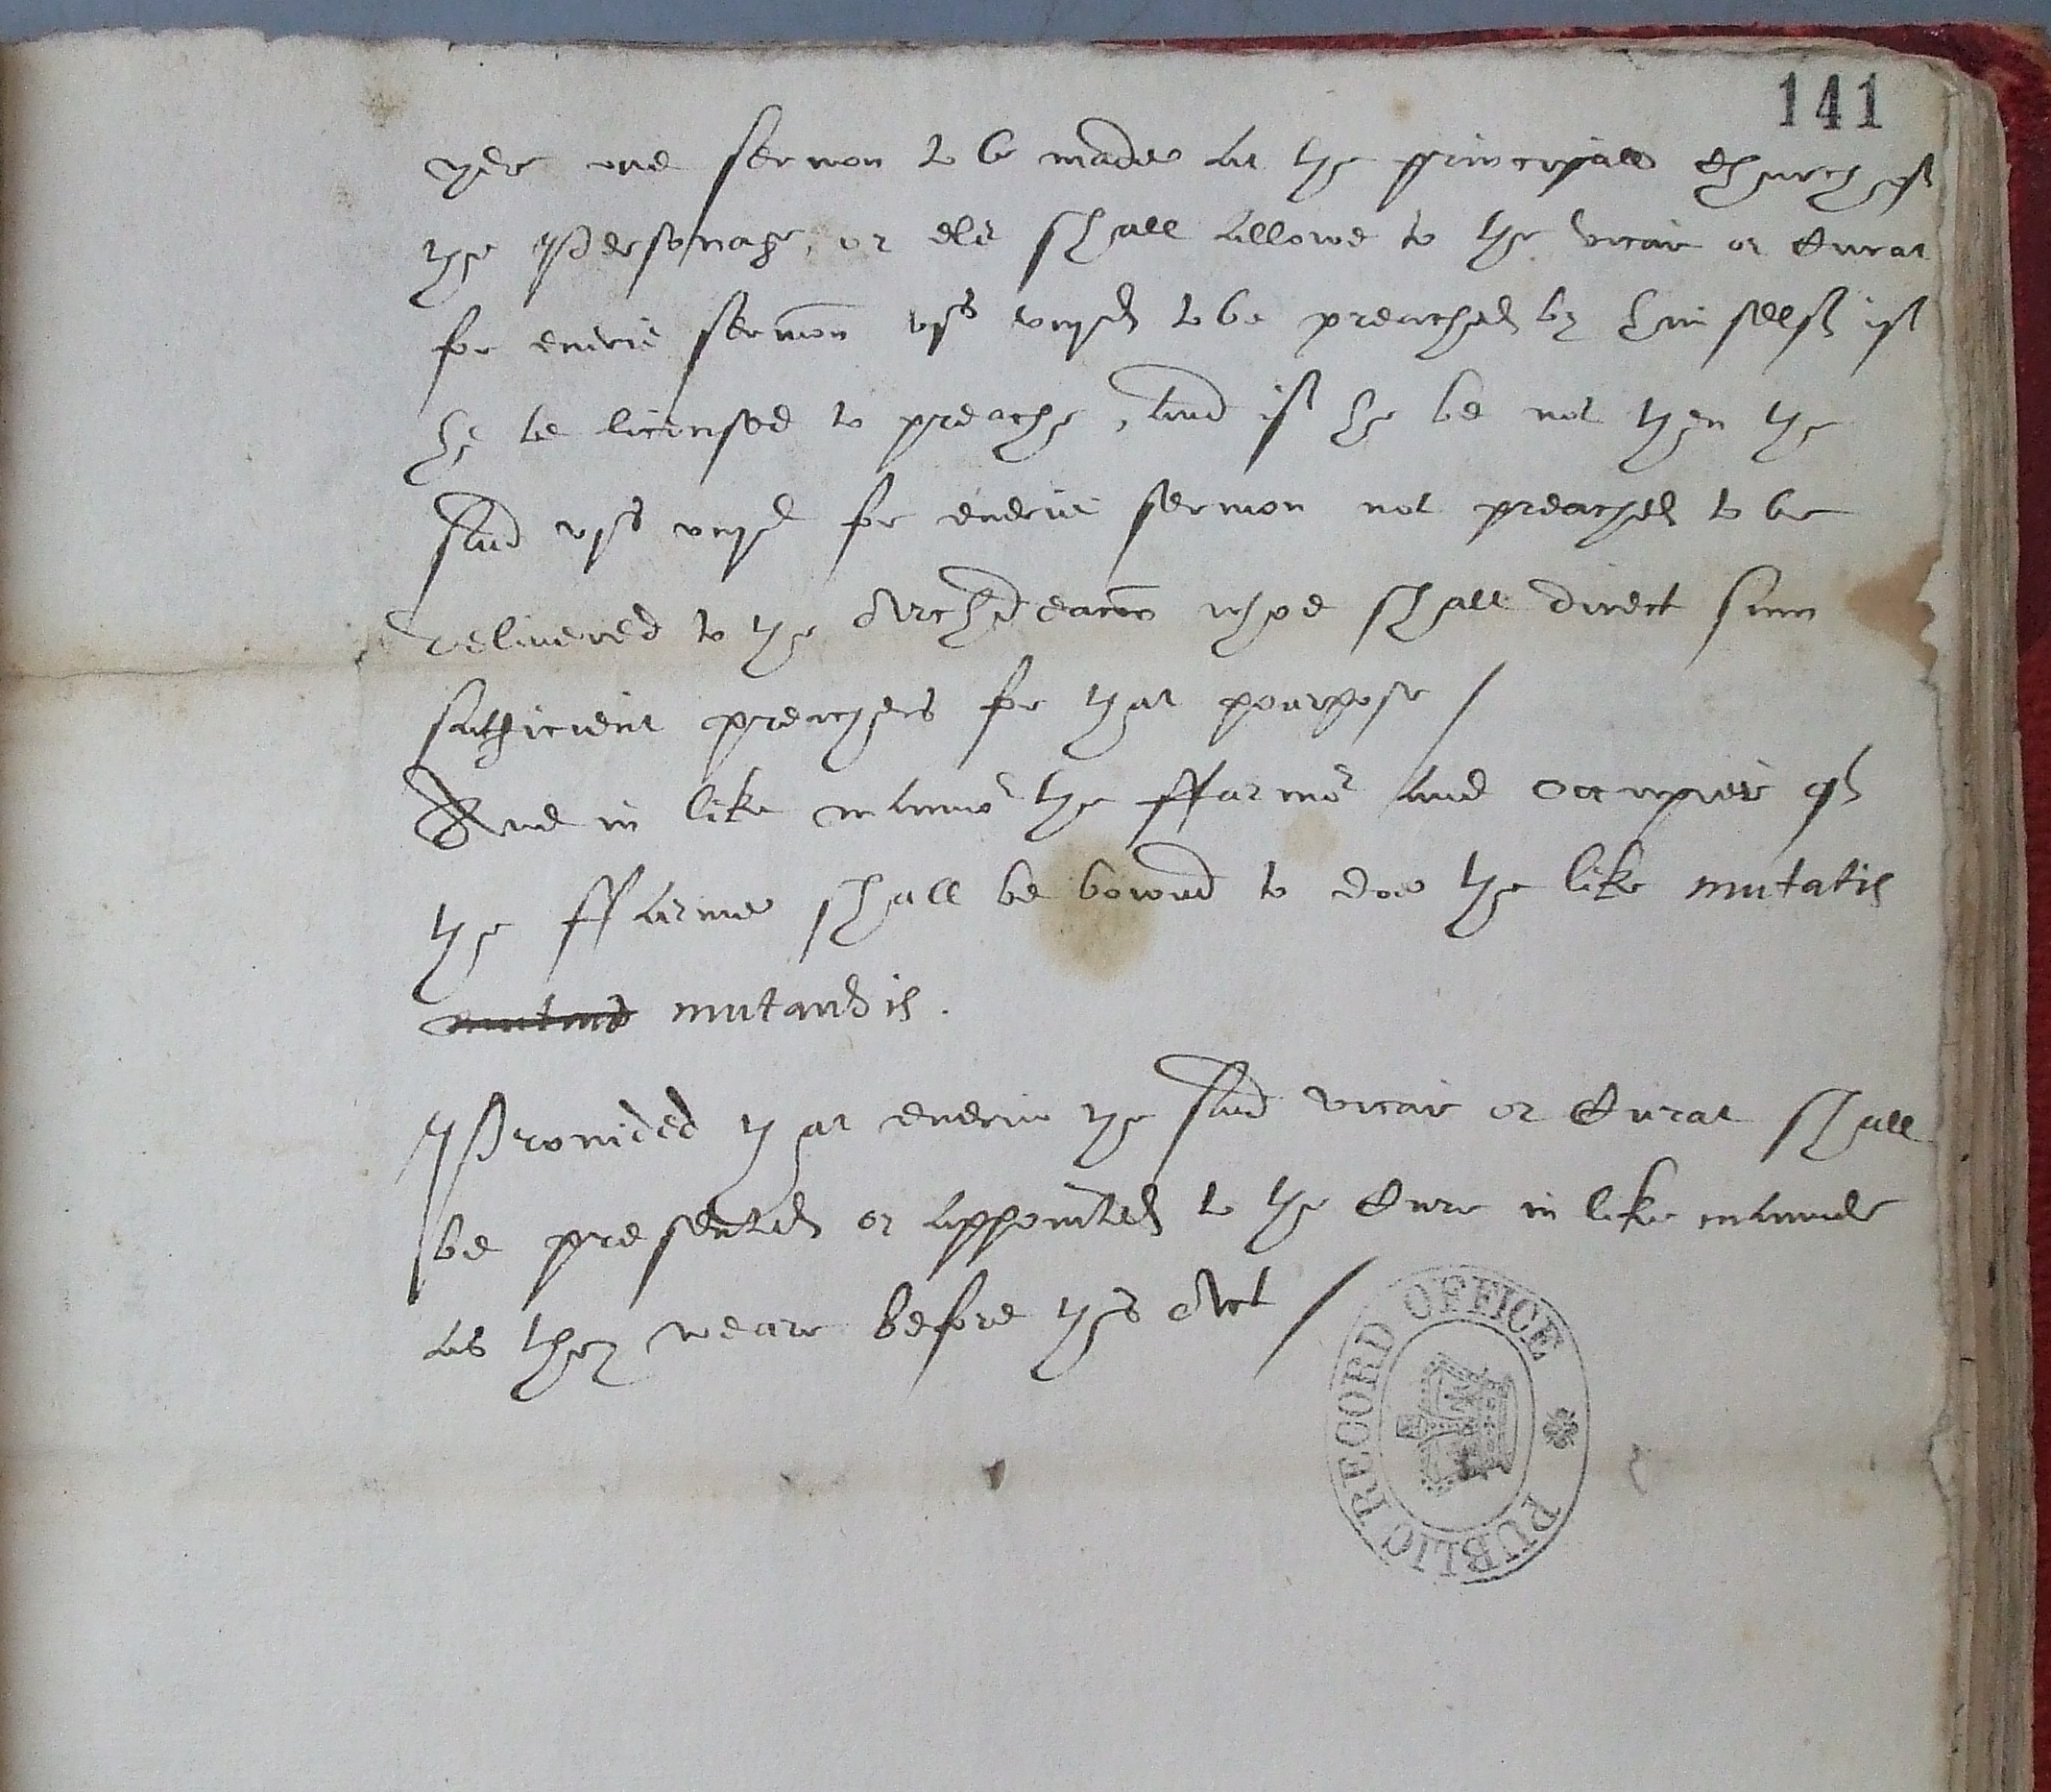 141
yere one sermon to be made at the principall Church of
the Personage, or els shall allowe to the vicar or Curat
for euerie sermon vjs viijd to be preached by himself if
he be licensed to preache, and if he be not then the
said vjs viijd for euerie sermon not preached to be
deliuered to the Archdeacon who shall direct som
sufficient preachers for that pourpose /
And in like manner the ffarmor and occupier of
the ffarme shall be bound to doe the like mutatis
mutandis.
Prouided that euerie the said vicar or Curat shall
be presented or appointed to the Cure in like manner
as they weare before this Act /
PUBLIC RECORD OFFICE